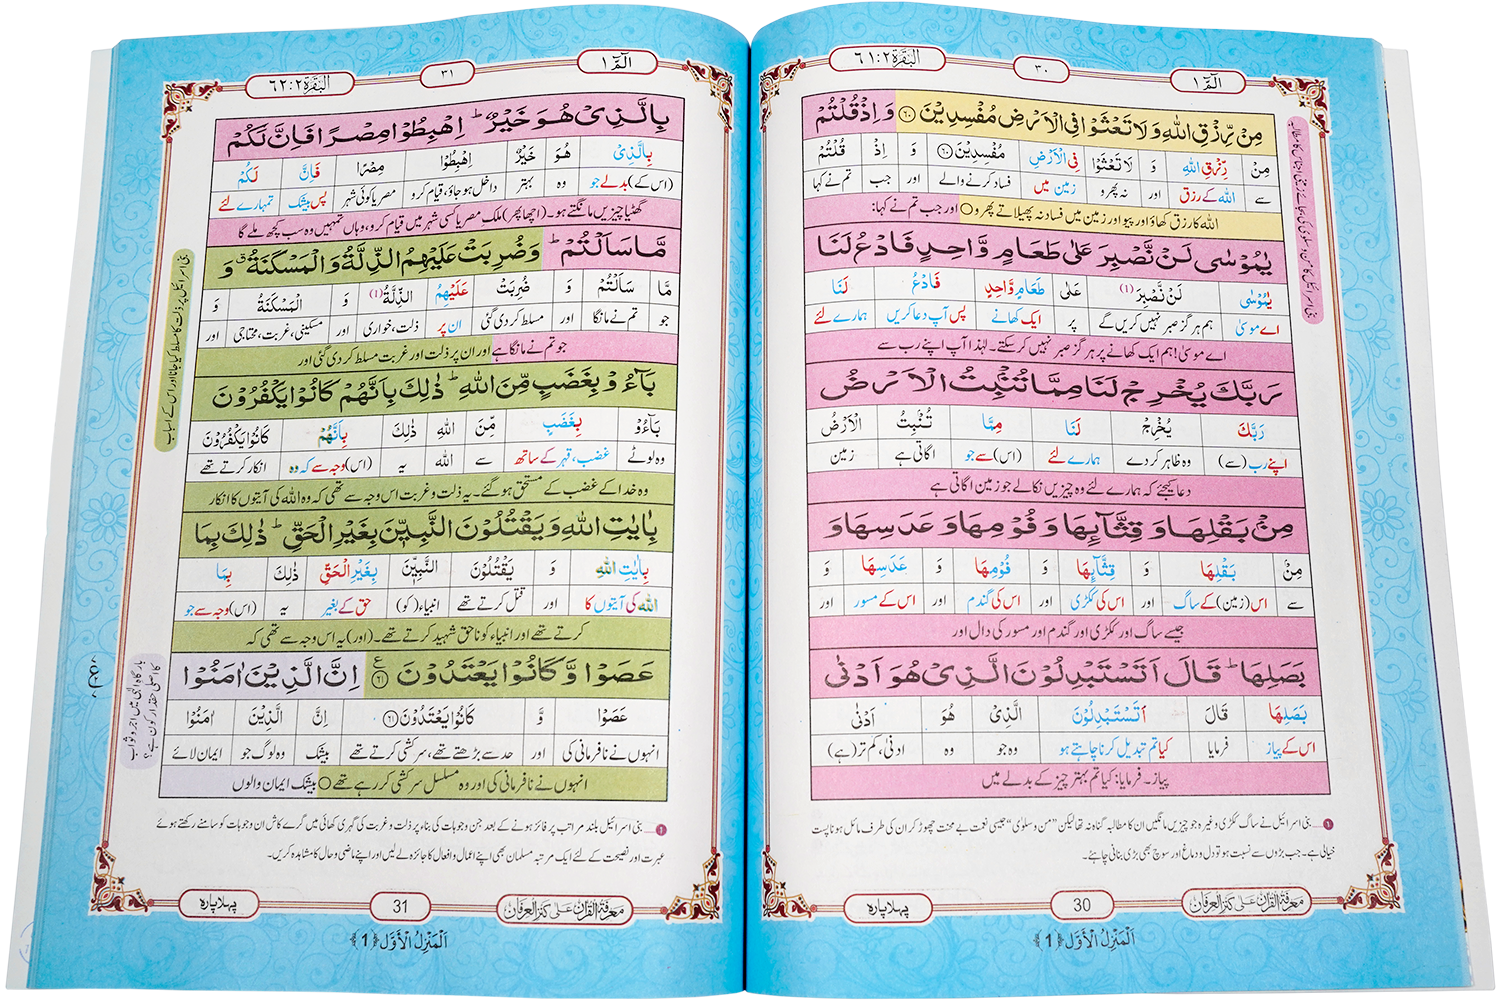 الٓمّٓ ١
٣٠
البَقَرَة ٢:٦١
مِنْ رِّزْقِ اللّٰهِ وَ لَا تَعْثَوْا فِی الْاَرْضِ مُفْسِدِیْنَ ﴿٦٠﴾ وَ اِذْ قُلْتُمْ
مِنْ رِّزْقِ اللّٰهِ وَ لَا تَعْثَوْا فِی الْاَرْضِ مُفْسِدِیْنَ ﴿٦٠﴾ وَ اِذْ قُلْتُمْ
سے اللہ کے رزق اور نہ پھرو زمین میں فساد کرنے والے اور جب تم نے کہا
اللہ کا رزق کھاؤ اور پیو اور زمین میں فساد نہ پھیلاتے پھرو ○ اور جب تم نے کہا:
یٰمُوْسٰی لَنْ نَّصْبِرَ عَلٰی طَعَامٍ وَّاحِدٍ فَادْعُ لَنَا
یٰمُوْسٰی لَنْ نَّصْبِرَ (1) عَلٰی طَعَامٍ وَّاحِدٍ فَادْعُ لَنَا
اے موسیٰ ہم ہرگز صبر نہیں کریں گے پر ایک کھانے پس آپ دعا کریں ہمارے لئے
اے موسیٰ! ہم ایک کھانے پر ہرگز صبر نہیں کرسکتے۔ لہٰذا آپ اپنے رب سے
رَبَّكَ یُخْرِجْ لَنَا مِمَّا تُنْۢبِتُ الْاَرْضُ
رَبَّكَ یُخْرِجْ لَنَا مِمَّا تُنْۢبِتُ الْاَرْضُ
اپنے رب (سے) وہ ظاہر کردے ہمارے لئے (اس) سے جو اگاتی ہے زمین
دعا کیجئے کہ ہمارے لئے وہ چیزیں نکالے جو زمین اگاتی ہے
مِنْۢ بَقْلِهَا وَ قِثَّآىِٕهَا وَ فُوْمِهَا وَ عَدَسِهَا وَ
مِنْۢ بَقْلِهَا وَ قِثَّآىِٕهَا وَ فُوْمِهَا وَ عَدَسِهَا وَ
سے اس (زمین) کے ساگ اور اس کی ککڑی اور اس کی گندم اور اس کے مسور اور
جیسے ساگ اور ککڑی اور گندم اور مسور کی دال اور
بَصَلِهَا ؕ قَالَ اَتَسْتَبْدِلُوْنَ الَّذِیْ هُوَ اَدْنٰی
بَصَلِهَا قَالَ اَتَسْتَبْدِلُوْنَ الَّذِیْ هُوَ اَدْنٰی
اس کے پیاز فرمایا کیا تم تبدیل کرنا چاہتے ہو وہ جو وہ ادنیٰ، کم تر (ہے)
پیاز۔ فرمایا: کیا تم بہتر چیز کے بدلے میں
1 بنی اسرائیل نے ساگ ککڑی وغیرہ جو چیزیں مانگیں ان کا مطالبہ گناہ نہ تھا لیکن "من و سلویٰ" جیسی نعمت بے محنت چھوڑ کر ان کی طرف مائل ہونا پست
خیالی ہے۔ جب بڑوں سے نسبت ہو تو دل و دماغ اور سوچ بھی بڑی بنانی چاہئے۔
معرفۃ القرآن علی کنز العرفان
30
پہلا پارہ
اَلْمَنْزِلُ الْاَوَّل ﴿1﴾
الٓمّٓ ١
٣١
البَقَرَة ٢:٦٢
بِالَّذِیْ هُوَ خَیْرٌ ؕ اِهْبِطُوْا مِصْرًا فَاِنَّ لَكُمْ
بِالَّذِیْ هُوَ خَیْرٌ اِهْبِطُوْا مِصْرًا فَاِنَّ لَكُمْ
(اس کے) بدلے جو وہ بہتر داخل ہوجاؤ، قیام کرو مصر یا کوئی شہر پس بیشک تمہارے لئے
گھٹیا چیزیں مانگتے ہو۔ (اچھا پھر) ملکِ مصر یا کسی شہر میں قیام کرو، وہاں تمہیں وہ سب کچھ ملے گا
مَّا سَاَلْتُمْ ؕ وَ ضُرِبَتْ عَلَیْهِمُ الذِّلَّةُ وَ الْمَسْكَنَةُ ۗ وَ
مَّا سَاَلْتُمْ وَ ضُرِبَتْ عَلَیْهِمُ الذِّلَّةُ (1) وَ الْمَسْكَنَةُ وَ
جو تم نے مانگا اور مسلط کردی گئی ان پر ذلت، خواری اور مسکینی، غربت، محتاجی اور
جو تم نے مانگا ہے اور ان پر ذلت اور غربت مسلط کردی گئی اور
بَآءُوْ بِغَضَبٍ مِّنَ اللّٰهِ ؕ ذٰلِكَ بِاَنَّهُمْ كَانُوْا یَكْفُرُوْنَ
بَآءُوْ بِغَضَبٍ مِّنَ اللّٰهِ ذٰلِكَ بِاَنَّهُمْ كَانُوْا یَكْفُرُوْنَ
وہ لوٹے غضب، قہر کے ساتھ سے اللہ یہ (اس) وجہ سے کہ وہ انکار کرتے تھے
وہ خدا کے غضب کے مستحق ہوگئے۔ یہ ذلت و غربت اس وجہ سے تھی کہ وہ اللہ کی آیتوں کا انکار
بِاٰیٰتِ اللّٰهِ وَ یَقْتُلُوْنَ النَّبِیّٖنَ بِغَیْرِ الْحَقِّ ؕ ذٰلِكَ بِمَا
بِاٰیٰتِ اللّٰهِ وَ یَقْتُلُوْنَ النَّبِیّٖنَ بِغَیْرِ الْحَقِّ ذٰلِكَ بِمَا
اللہ کی آیتوں کا اور قتل کرتے تھے انبیاء (کو) حق کے بغیر یہ (اس) وجہ سے جو
کرتے تھے اور انبیاء کو ناحق شہید کرتے تھے۔ (اور) یہ اس وجہ سے تھی کہ
عَصَوْا وَّ كَانُوْا یَعْتَدُوْنَ ﴿٦١﴾ ع اِنَّ الَّذِیْنَ اٰمَنُوْا
عَصَوْا وَّ كَانُوْا یَعْتَدُوْنَ ﴿٦١﴾ اِنَّ الَّذِیْنَ اٰمَنُوْا
انہوں نے نافرمانی کی اور حد سے بڑھتے تھے، سرکشی کرتے تھے بیشک وہ لوگ جو ایمان لائے
انہوں نے نافرمانی کی اور وہ مسلسل سرکشی کر رہے تھے ○ بیشک ایمان والوں
بنی اسرائیل پر ذلت کا مسلط کیا جانا اور اس کے اسباب
بارگاہِ الٰہی میں اجر و ثواب
کا اصلی حقدار کون ہے؟
1 بنی اسرائیل بلند مراتب پر فائز ہونے کے بعد جن وجوہات کی بناء پر ذلت و غربت کی گہری کھائی میں گرے کاش ان وجوہات کو سامنے رکھتے ہوئے
عبرت اور نصیحت کے لئے ایک مرتبہ مسلمان بھی اپنے اعمال و افعال کا جائزہ لے لیں اور اپنے ماضی و حال کا مشاہدہ کریں۔
معرفۃ القرآن علی کنز العرفان
31
پہلا پارہ
اَلْمَنْزِلُ الْاَوَّل ﴿1﴾